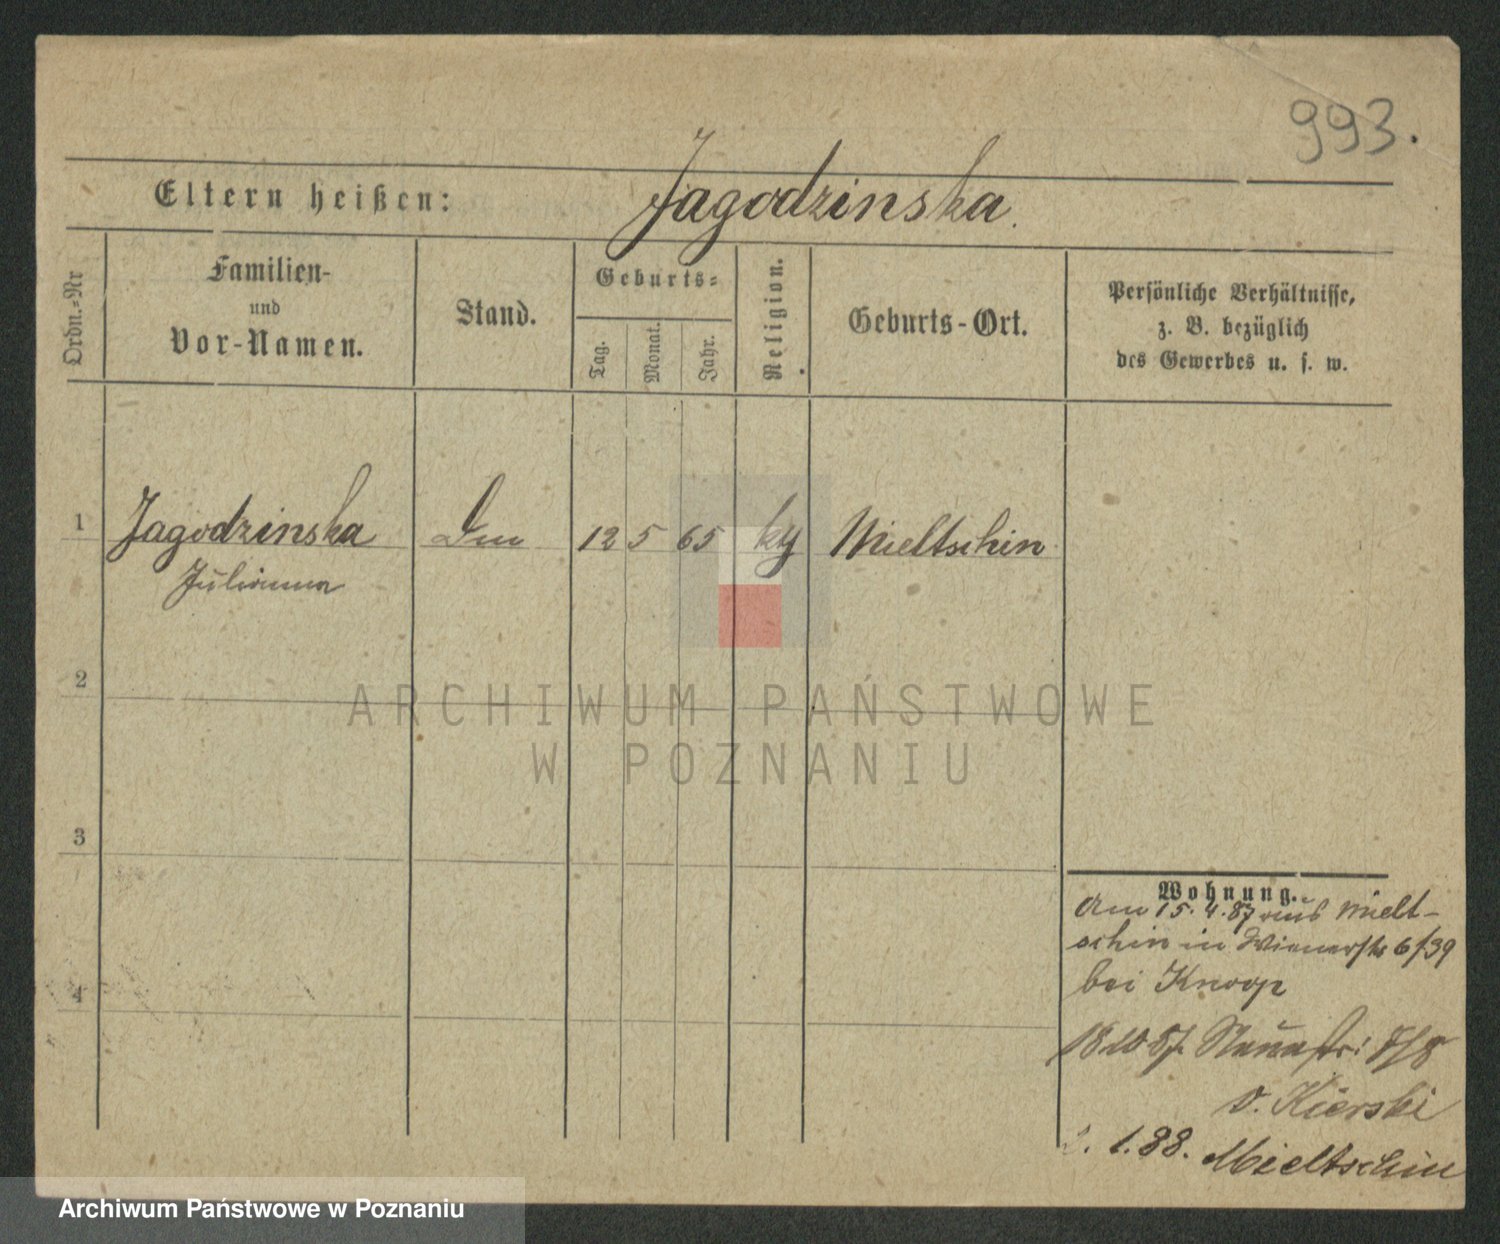 993.
Eltern heißen: Jagodzinska.
Ordn.=Nr
Familien-
und
Vor-Namen.
Stand.
Geburts=
Tag.
Monat.
Jahr.
Religion.
Geburts-Ort.
Persönliche Verhältnisse,
z. B. bezüglich
des Gewerbes u. s. w.
1 Jagodzinska 12 5 65 Mieltschin
Julianna
2
3
4
ARCHIWUM PAŃSTWOWE
W POZNANIU
Wohnung.
Am 15.4.87 aus Mielt-
schin in Wienerstr 6/39
bei Knoop
18 10 87. 7/8
v. Kierski
1.88. Mieltschin
Archiwum Państwowe w Poznaniu